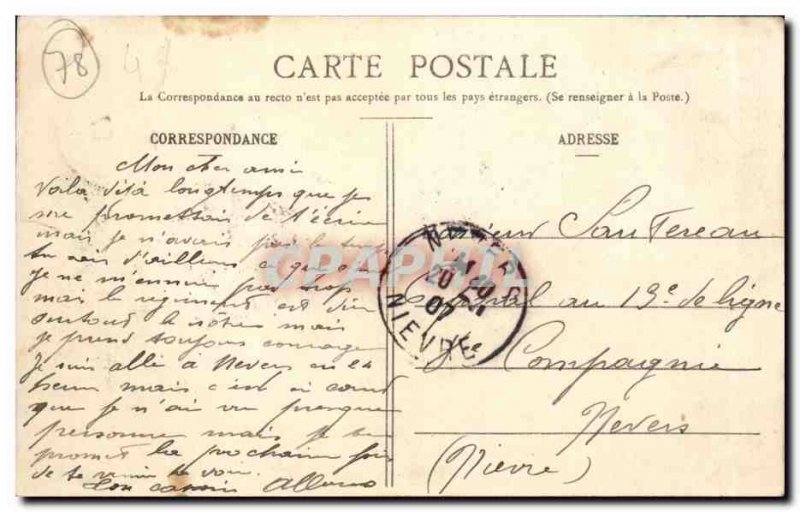 78
CARTE POSTALE
La Correspondance au recto n'est pas acceptée par tous les pays étrangers. (Se renseigner à la Poste.)
CORRESPONDANCE
Mon cher ami
Voila déjà longtemps que je
me promettais de t'écrire
mais je n'avais pas le temps
tu sais d'ailleurs ce que c'est
je ne m'ennuie pas trop
mais le régiment est
surtout le nôtre mais
je prend toujours courage
Je suis allé à Nevers en 24
heures mais c'est si court
que je n'ai vu presque
personne mais je te
promet la prochaine fois
de te venir te voir.
Ton cousin
ADRESSE
Monsieur Sautereau
Caporal au 13e de ligne
Compagnie
Nevers
(Nièvre)
NEVERS
20
07
NIEVRE
CPAPHIL